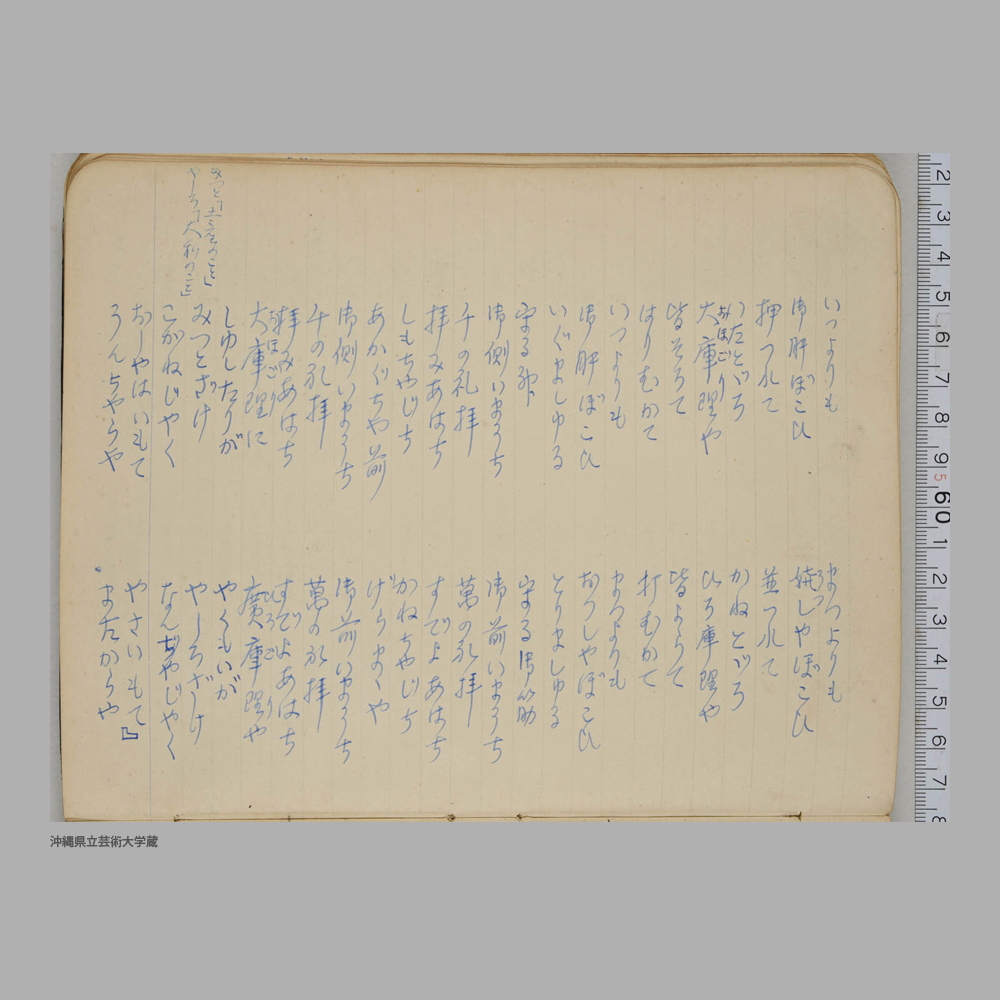 いつよりも
御肝ぼこひ
押つれて
いたとゞち
大庫理や
おほごり
皆そろて
はりむかて
いつよりも
御肝ぼこひ
いぐましゆる
守る
御側いまうち
千の礼拝
拝みあはち
しもちやじち
あかぐちや前
御側いまうち
千の礼拝
拝みあはち
大庫理に
おほごり
しゆしたりが
みつとざけ
こがねじやく
おしやはいもて
ろんちやらや
まつよりも
続しやぼこひ
並つれて
かねとゞろ
ひろ庫理や
皆よらて
打むかて
まつよりも
おつしやぼこひ
とりましゆる
守る
御前いまうち
萬の礼拝
すでよあはち
かねちやじち
げらまくや
御前いまうち
萬の礼拝
すでよあはち
廣庫理や
ひろごり
やくもいが
やしろざけ
なんぢやじやく
やさいもて』
またからや
沖縄県立芸術大学蔵